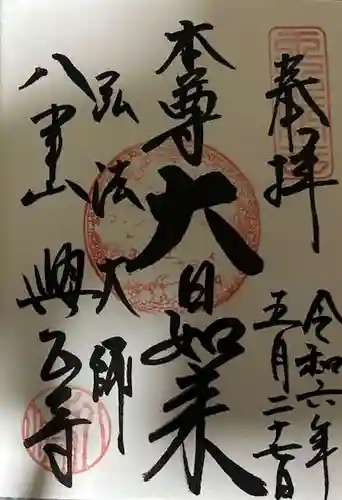 奉拝
令和六年
五月二十七日
本尊
大日如来
弘法大師
八事山
興正寺